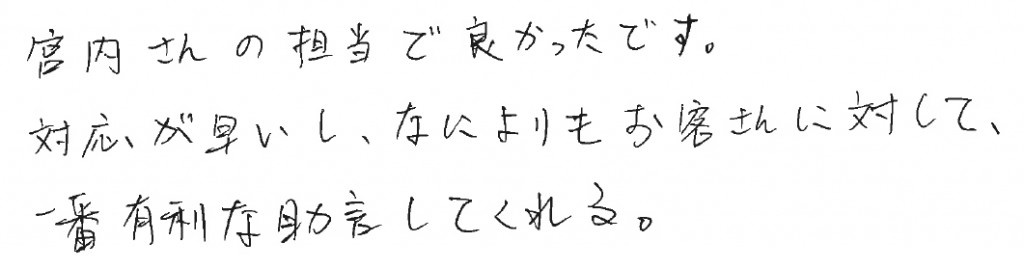 宮内さんの担当で良かったです。
対応が早いし、なによりもお客さんに対して、
一番有利な助言してくれる。